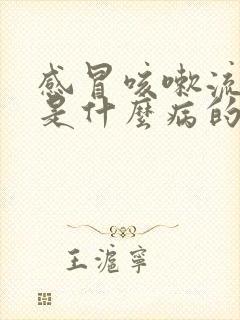 感冒咳嗽流
是什麼病的
王滬寧